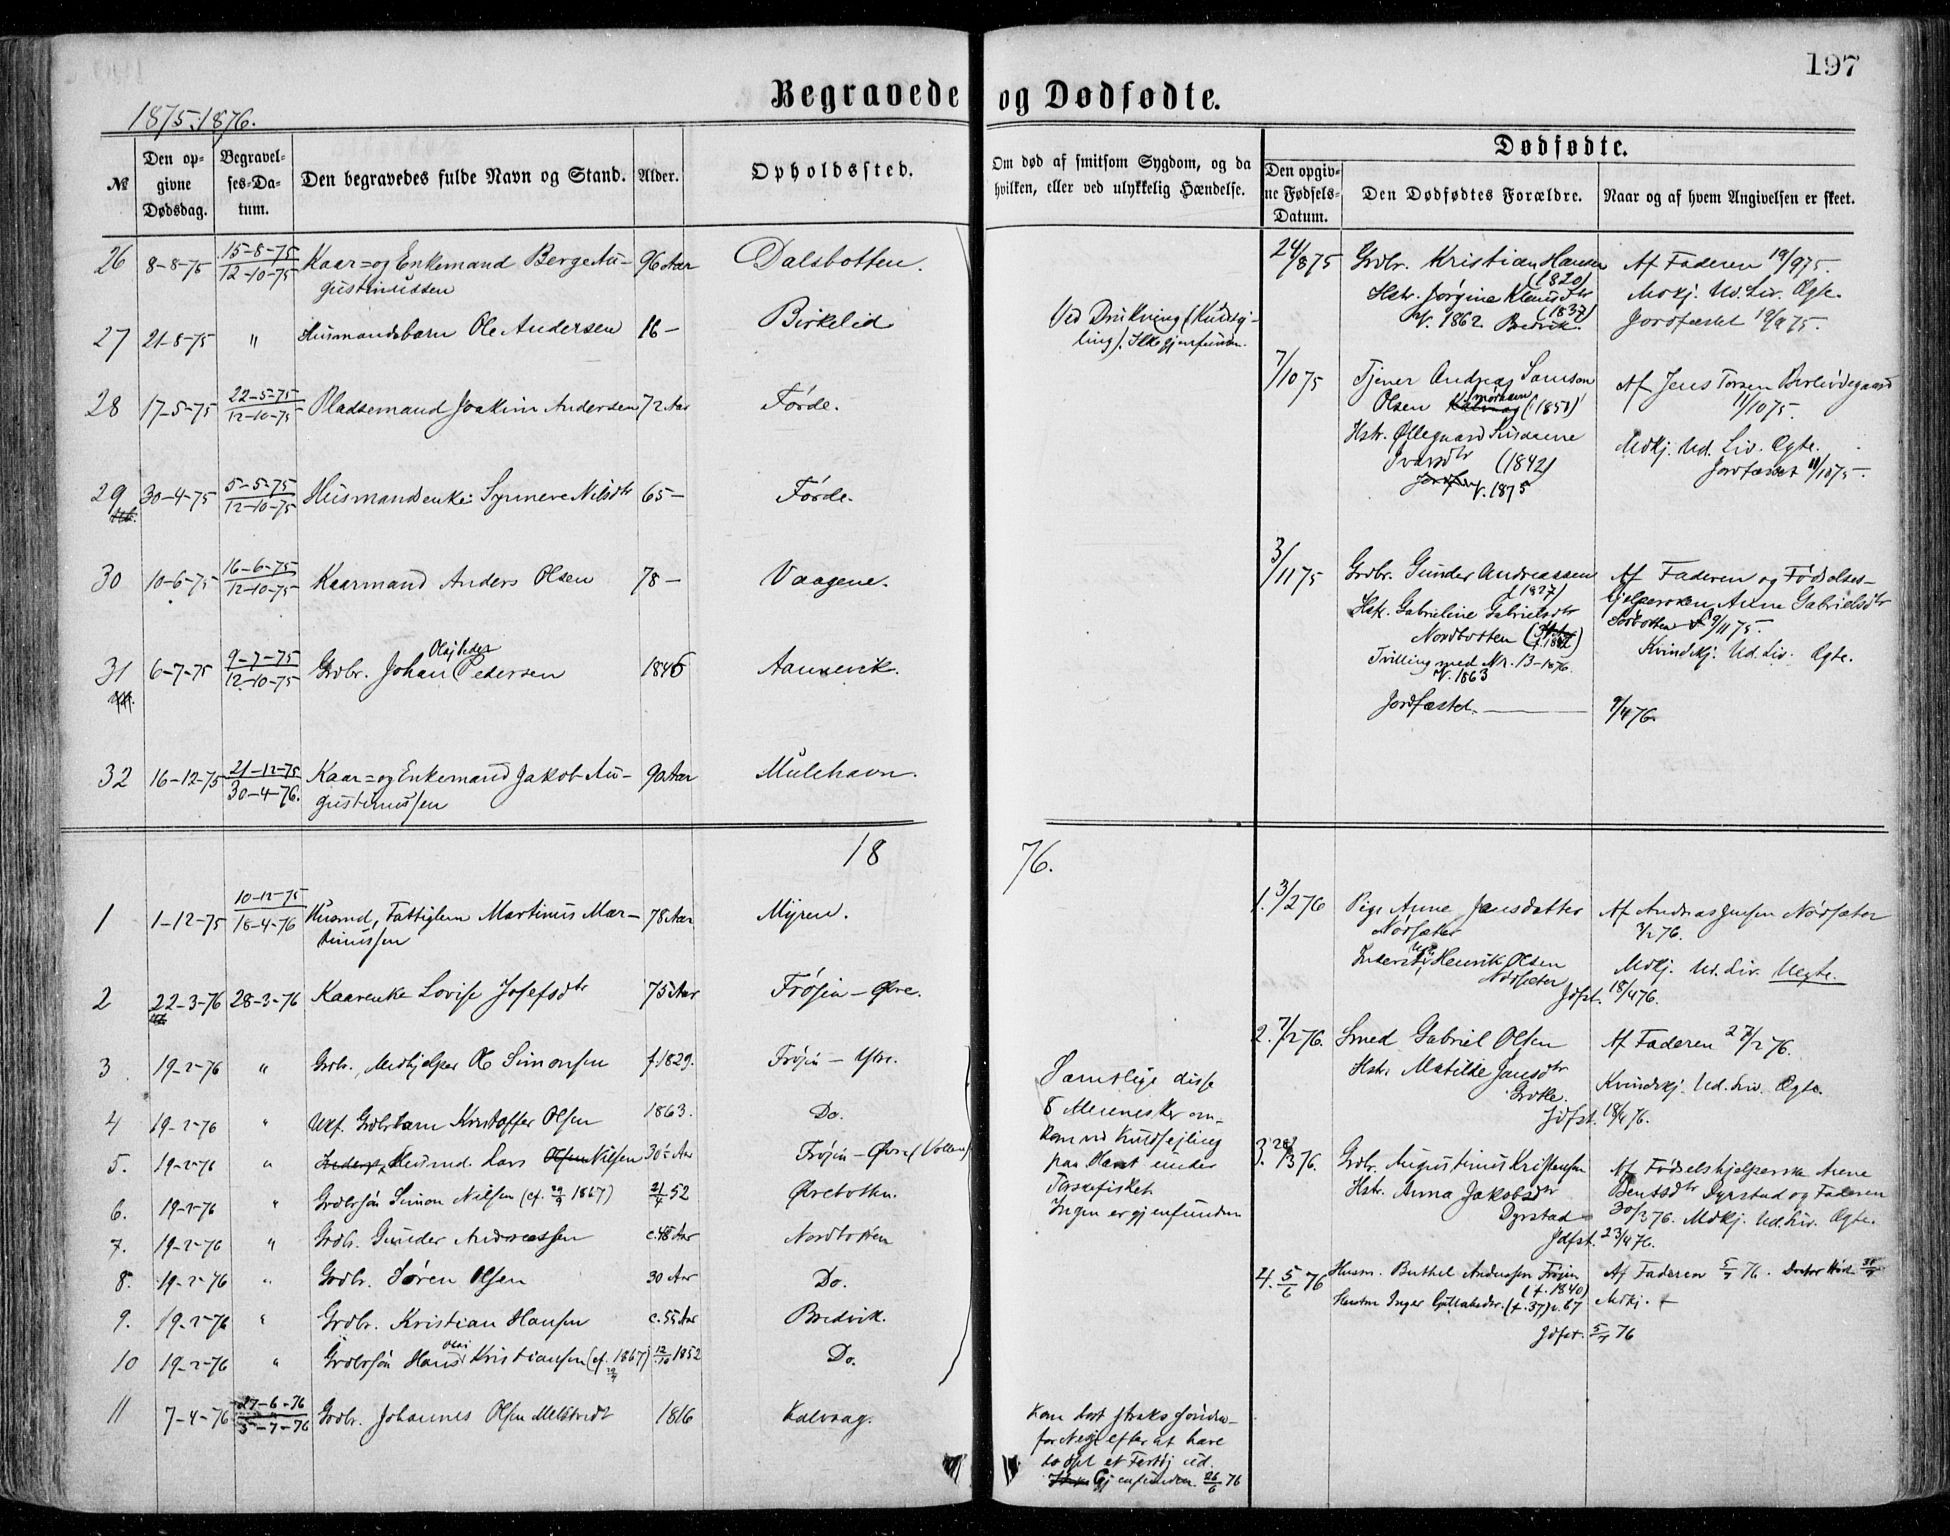 197
Begravede og Dødfødte.
1875-1876.
№
Den op-
givne
Dødsdag.
Begravel-
ses-Da-
tum.
Den begravedes fulde Navn og Stand.
Alder.
Opholdssted.
Om død af smitsom Sygdom, og da
hvilken, eller ved ulykkelig Hændelse.
Dødfødte.
Den opgiv-
ne Fødsels-
Datum.
Den Dødfødtes Forældre.
Naar og af hvem Angivelsen er skeet.
26 8-8-75 15-8-75 / 12-10-75 Kaar- og Enkemand Berge Au- 96 Aar Dalsbotten.
gustinussen
27 21-8-75 " Husmandsbarn Ole Andersen 16 – Birkelid Ved Drukning (Kuldsej-
ling). Ikke gjenfunden.
28 17-5-75 22-5-75 / 12-10-75 Pladsemand Joakim Andersen 72 Aar Førde.
29 30-4-75 5-5-75 / 12-10-75 Husmandsenke Synneve Nilsdtr 65 – Førde.
30 10-6-75 16-6-75 / 12-10-75 Kaarmand Anders Olsen 78 – Vaagene.
31 6-7-75 9-7-75 / 12-10-75 Grdbr. Johan Pedersen 1846 Aannevik.
32 16-12-75 21-12-75 / 30-4-76. Kaar- og Enkemand Jakob Au- 90 Aar Mulehavn.
gustinussen
24/8 75 Grdbr. Kristian Hansen Af Faderen 19/9 75.
(1820)
Hstr. Jørgine Klausdtr Mdkj. Ud. Liv. Ægte.
(1837)
V. 1862 Bredvik. Jordfæstet 19/9 75.
7/10 75 Tjener Andreas Samson Af Jens
Olsen (1851) 11/10 75.
Hstr. Øllegaard Susanne Mdkj. Ud. Liv. Ægte.
Ivarsdtr (1842) Jordfæstet 11/10 75.
V. 1875
3/11 75 Grdbr. Gunder Andreassen Af Faderen og Fødsels-
(1827)
Hstr. Gabrieline Gabrielsdtr hjelpersken Anne Gabrielsdtr
Nordbotten 9/11 75.
Tvilling med Nr. 13-1876. Kvindekj. Ud. Liv. Ægte.
V. 1863
Jordfæstet. 9/4 76.
18 76.
1 1-12-75 10-12-75 / 18-4-76 Husmd, Fattiglem Martinus Mar- 78 Aar Myren.
tinussen
2 22-3-76 28-3-76 Kaarenke Lovise Josefsdtr 75 Aar Frøsin – Øvre.
3 19-2-76 " Grdbr., Medhjelper Ole Simonsen f. 1829. Frøsin – Ytre.
4 19-2-76 " Ukf. Grdbrbarn Kristoffer Olsen 1863. Do.
5. 19-2-76 " Husmd. Lars Nilsen 30½ Aar Frøsin – Øvre (Vollen)
6. 19-2-76 " Grdbrsøn Simon Nilsen (cf. 29/9 1867) 21/4 52 Øvrebotten.
7. 19-2-76 " Grdbr. Gunder Andreassen c. 48 Aar Nordbotten
8. 19-2-76 " Grdbr. Søren Olsen 30 Aar Do.
9. 19-2-76 " Grdbr. Kristian Hansen c. 55 Aar Bredvik.
10 19-2-76 " Grdbrsøn Hans Olai Kristiansen (cf. 1867) 12/10 1852 Do.
11 7-4-76 27-6-76 / 5-7-76 Grdbr. Johannes Olsen 1816 Kalvaag.
Samtlige disse
8 Mennesker om-
kom ved Kuldsejling
paa Havet under
Torskefisket.
Ingen er gjenfunden
Kom bort straks
efter at have
et Fartøj ud.
Gjenfunden 26/6 76
1. 3/2 76 Pige Anne Jansdatter Af Andreas Jensen Nørsæter
Nørsæter 3/2 76.
Henrik Olsen Mdkj. Ud. Liv. Uegte.
Nørsæter
Jdfst. 18/4 76.
2. 7/2 76. Smed Gabriel Olsen Af Faderen 27/2 76.
Hstr. Matilde Jansdtr Kvindekj. Ud. Liv. Ægte.
Grotle.
Jdfst. 18/4 76.
3. 76. Grdbr. Augustinus Kristensen Af Fødselshjelperske Anne
Hstr. Anna Jakobsdtr Bentsdtr Dyrstad og Faderen
Dyrstad 30/3 76. Mdkj. Ud. Liv. Ægte.
Jdfst. 23/4 76.
4. 5/6 76 Husm. Berthel Anderssen Frøsin Af Faderen 5/7 76.
(f. 1840)
Hustru Inger (f. 37) v. 67 Mdkj.
Jdfst. 5/7 76